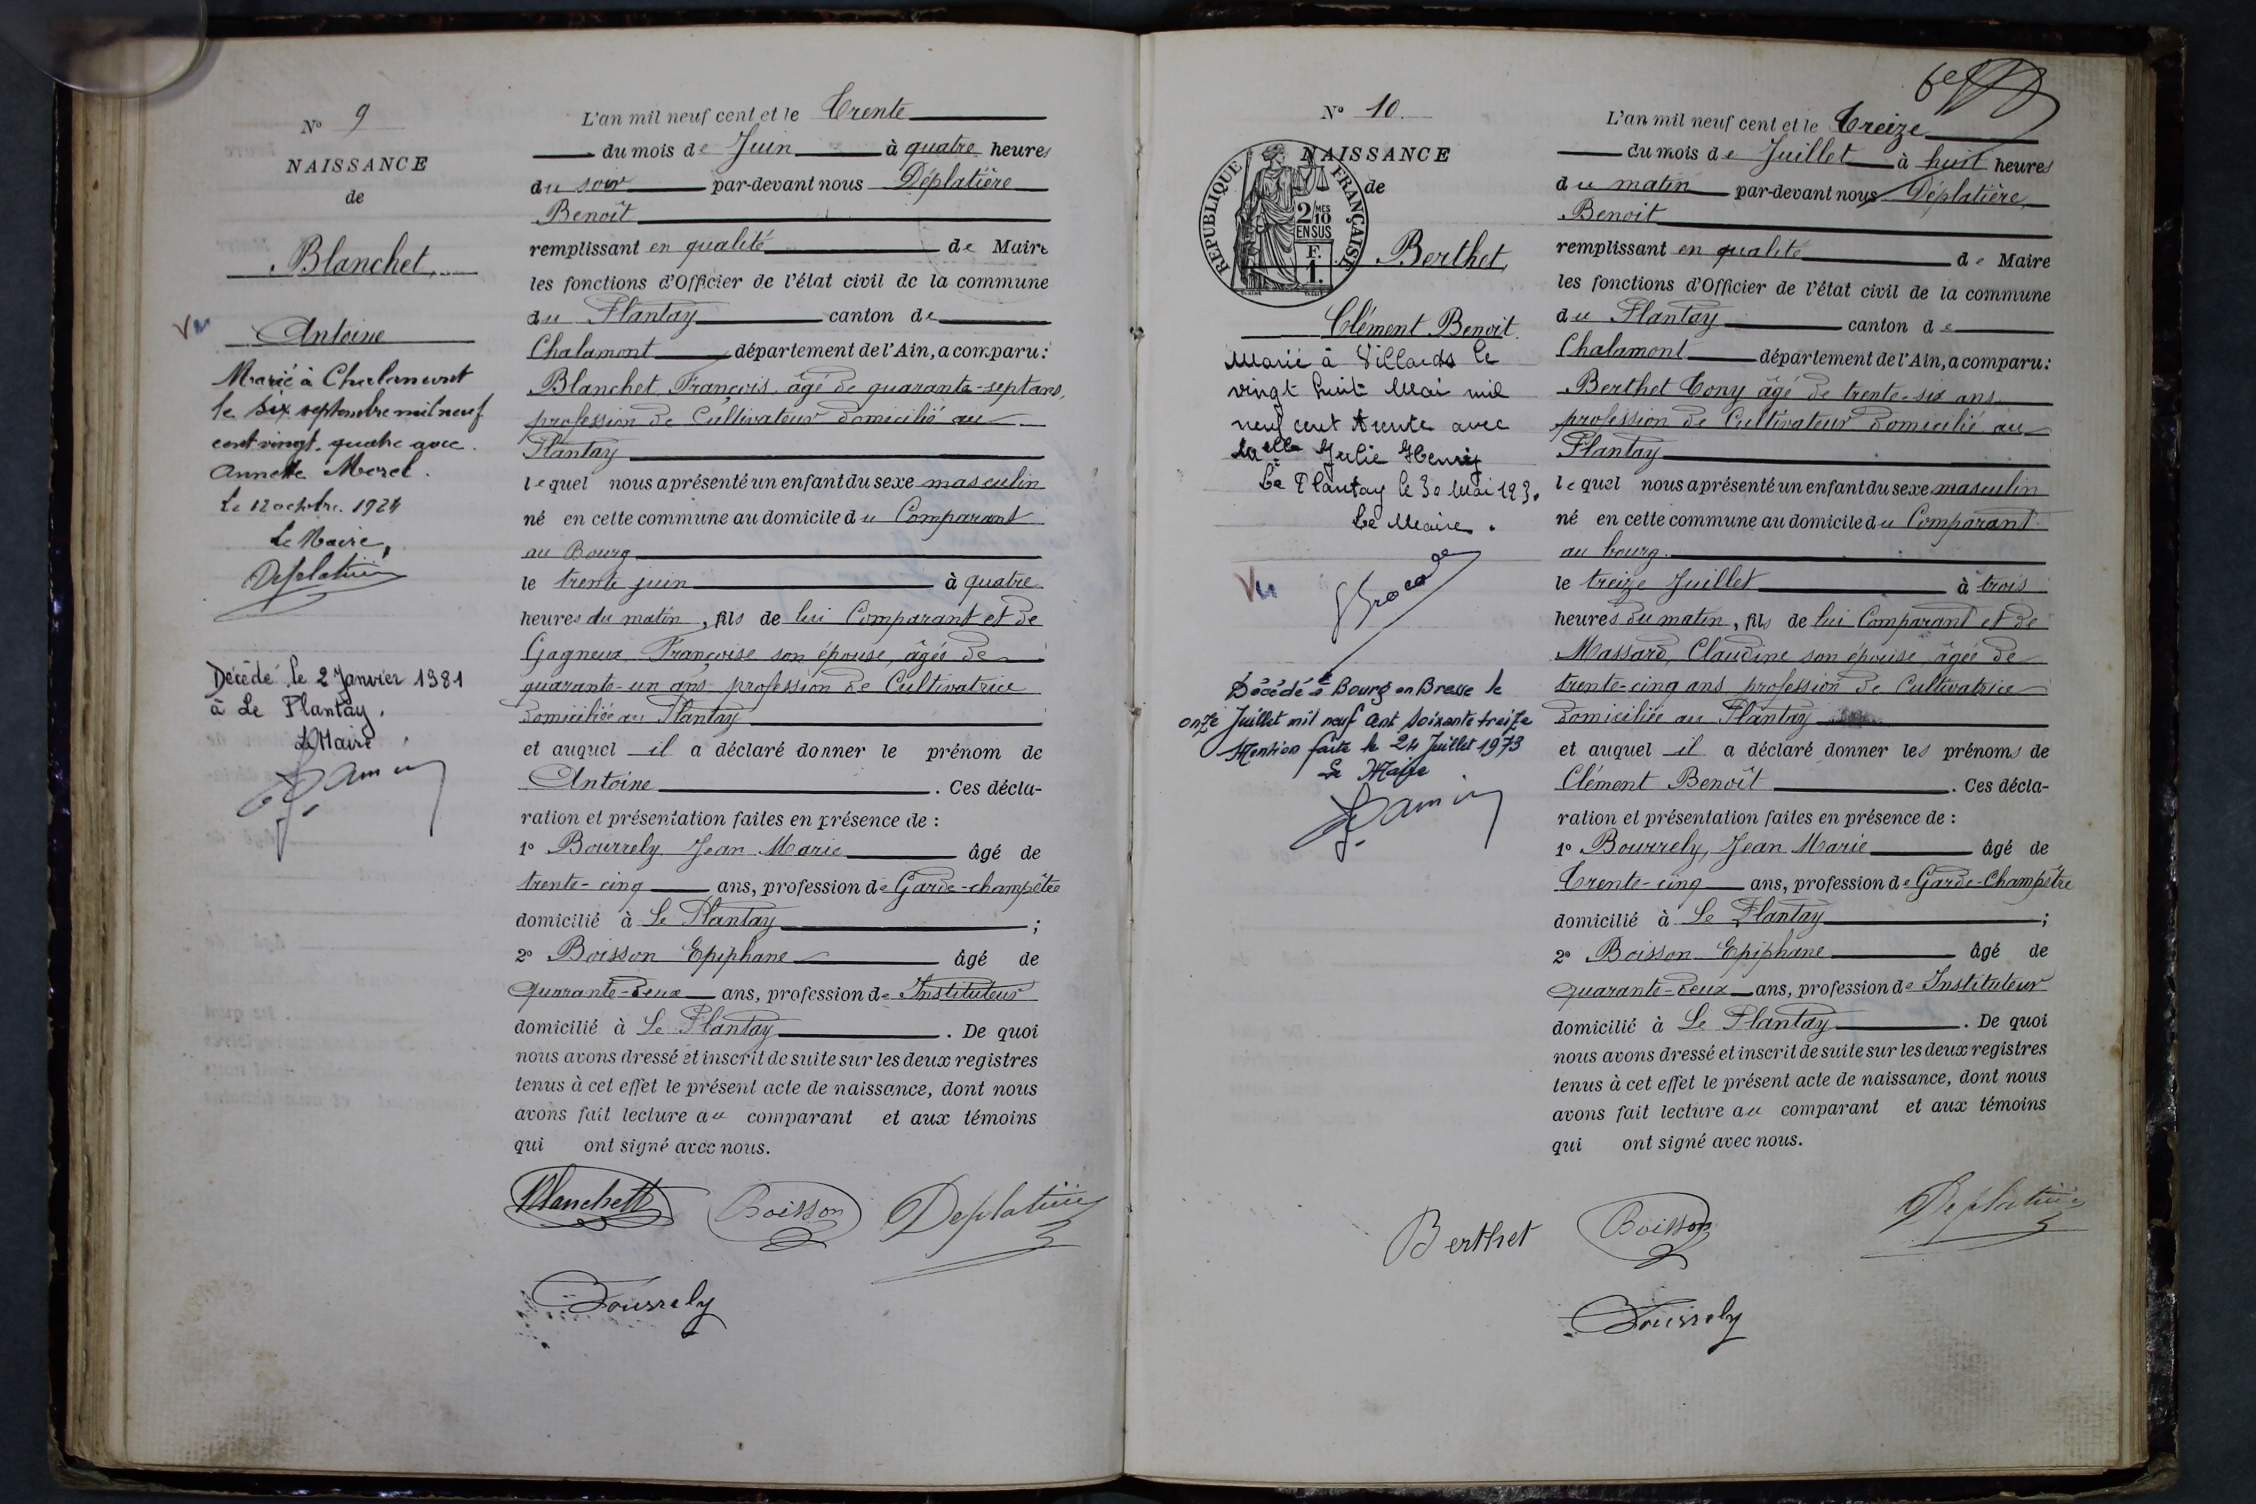 N° 9
NAISSANCE
de
Blanchet,
Antoine
Vu
Marié à Chalamont
le six septembre mil neuf
cent vingt-quatre avec
Annette Morel.
Le 12 octobre 1924
Le Maire,
Deplatière
Décédé le 2 Janvier 1981
à Le Plantay.
Le Maire
L'an mil neuf cent et le Trente
du mois de Juin à quatre heures
du soir par-devant nous Déplatière
Benoît
remplissant en qualité de Maire
les fonctions d'Officier de l'état civil de la commune
du Plantay canton de
Chalamont département de l'Ain, a comparu :
Blanchet, François, âgé de quarante-sept ans,
profession de Cultivateur domicilié au
Plantay
lequel nous a présenté un enfant du sexe masculin
né en cette commune au domicile du Comparant
au Bourg
le trente juin à quatre
heures du matin, fils de lui Comparant et de
Gagneux, Françoise son épouse, âgée de
quarante-un ans profession de Cultivatrice
domiciliée au Plantay
et auquel il a déclaré donner le prénom de
Antoine. Ces décla-
ration et présentation faites en présence de :
1° Bourrely Jean Marie âgé de
trente-cinq ans, profession de Garde-champêtre
domicilié à Le Plantay ;
2° Boisson Epiphane âgé de
quarante-deux ans, profession de Instituteur
domicilié à Le Plantay. De quoi
nous avons dressé et inscrit de suite sur les deux registres
tenus à cet effet le présent acte de naissance, dont nous
avons fait lecture au comparant et aux témoins
qui ont signé avec nous.
Blanchett Boisson Deplatière
Bourrely
N° 10.
NAISSANCE
de
REPUBLIQUE FRANÇAISE
2/10 MES
EN SUS
F.
1.
Berthet,
Clément Benoit.
Marié à Villards le
vingt huit Mai mil
neuf cent trente avec
Julie Henry
Le Plantay le 30 Mai 1930
Le Maire.
Vu
Décédé à Bourg en Bresse le
onze Juillet mil neuf cent soixante treize
Mention faite le 24 Juillet 1973
Le Maire
6e
L'an mil neuf cent et le Treize
du mois de Juillet à huit heures
du matin par-devant nous Déplatière,
Benoit
remplissant en qualité de Maire
les fonctions d'Officier de l'état civil de la commune
du Plantay canton de
Chalamont département de l'Ain, a comparu :
Berthet Tony âgé de trente-six ans
profession de Cultivateur domicilié au
Plantay
lequel nous a présenté un enfant du sexe masculin
né en cette commune au domicile du Comparant
au bourg.
le treize Juillet à trois
heures du matin, fils de lui Comparant et de
Massard, Claudine son épouse, âgée de
trente-cinq ans profession de Cultivatrice
domiciliée au Plantay
et auquel il a déclaré donner les prénoms de
Clément Benoît. Ces décla-
ration et présentation faites en présence de :
1° Bourrely, Jean Marie âgé de
Trente-cinq ans, profession de Garde-Champêtre
domicilié à Le Plantay ;
2° Boisson Epiphane âgé de
quarante-deux ans, profession de Instituteur
domicilié à Le Plantay. De quoi
nous avons dressé et inscrit de suite sur les deux registres
tenus à cet effet le présent acte de naissance, dont nous
avons fait lecture au comparant et aux témoins
qui ont signé avec nous.
Berthet Boisson Deplatière
Bourrely